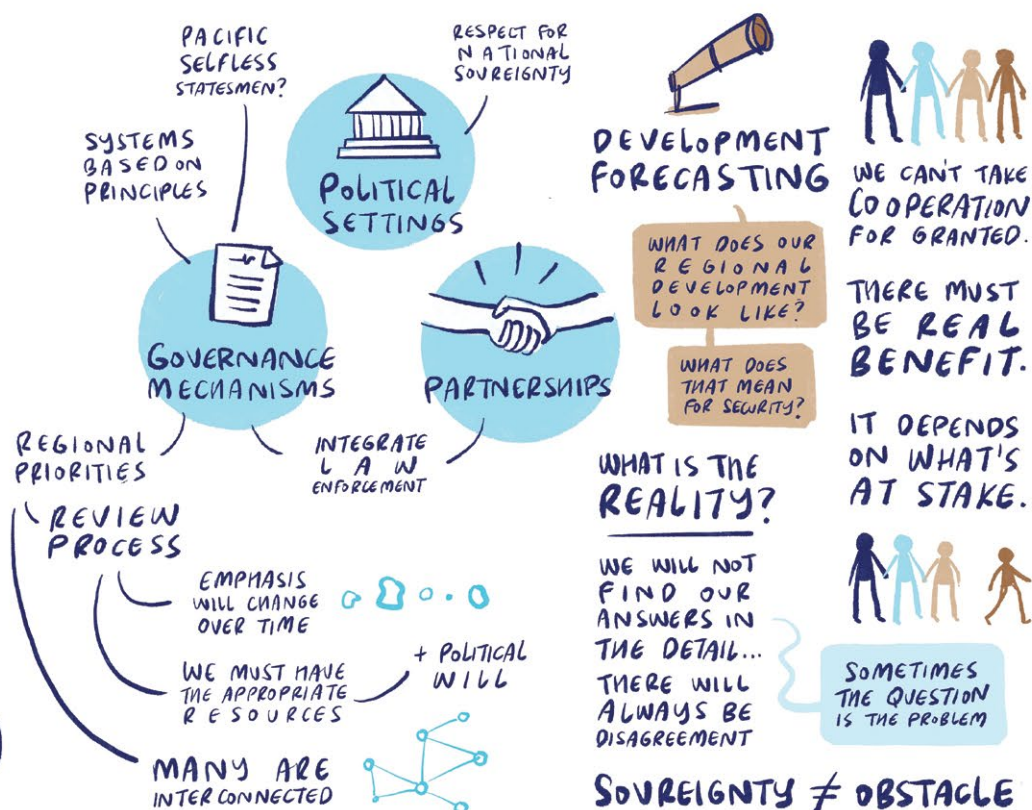 PACIFIC
SELFLESS
STATESMEN?
RESPECT FOR
NATIONAL
SOVREIGNTY
SYSTEMS
BASED ON
PRINCIPLES
POLITICAL
SETTINGS
GOVERNANCE
MECHANISMS
PARTNERSHIPS
INTEGRATE
LAW
ENFORCEMENT
REGIONAL
PRIORITIES
REVIEW
PROCESS
EMPHASIS
WILL CHANGE
OVER TIME
WE MUST HAVE
THE APPROPRIATE
RESOURCES
+ POLITICAL
WILL
MANY ARE
INTERCONNECTED
DEVELOPMENT
FORECASTING
WHAT DOES OUR
REGIONAL
DEVELOPMENT
LOOK LIKE?
WHAT DOES
THAT MEAN
FOR SECURITY?
WHAT IS THE
REALITY?
WE WILL NOT
FIND OUR
ANSWERS IN
THE DETAIL...
THERE WILL
ALWAYS BE
DISAGREEMENT
SOMETIMES
THE QUESTION
IS THE PROBLEM
SOVREIGNTY ≠ OBSTACLE
WE CAN'T TAKE
COOPERATION
FOR GRANTED.
THERE MUST
BE REAL
BENEFIT.
IT DEPENDS
ON WHAT'S
AT STAKE.